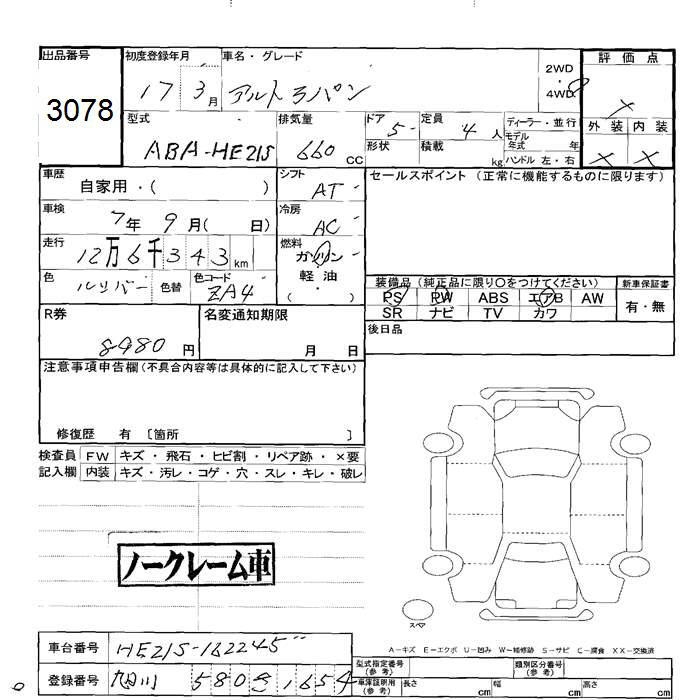 出品番号 初度登録年月 車名・グレード 評価点
3078 17 3月 アルトラパン 2WD・4WD X
型式 排気量 ドア 定員 ディーラー・並行 外装 内装
ABA-HE21S 660 CC 5 4人 モデル年式 年 X X
形状 積載 kg ハンドル 左・右
車歴 シフト セールスポイント (正常に機能するものに限ります)
自家用・( ) AT
車検 冷房
7年 9月( 日) AC
走行 燃料
12万6千343km ガソリン
色 色替 色コード 軽油
ZA4 ( )
装備品 (純正品に限り○をつけてください) 新車保証書
PS PW ABS エアB AW 有・無
SR ナビ TV カワ
R券 名変通知期限 後日品
8980円 月 日
注意事項申告欄(不具合内容等は具体的に記入して下さい)
修復歴 有 〔箇所 〕
検査員 FW キズ・飛石・ヒビ割・リペア跡・×要
記入欄 内装 キズ・汚レ・コゲ・穴・スレ・キレ・破レ
ノークレーム車
スペア
A-キズ E-エクボ U-凹み W-補修跡 S-サビ C-腐食 XX-交換済
車台番号 HE21S-162245
登録番号 旭川 580 る 1654
型式指定番号(参考) 類別区分番号(参考)
車庫証明用(参考) 長さ cm 幅 cm 高さ cm